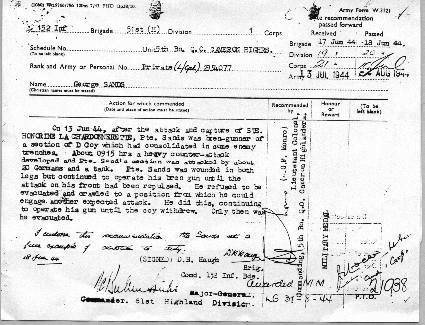 Army Form W.3121
recommendation
passed forward
Received Passed
152 Inf Brigade 51st (H) Division 1 Corps
Brigade 17 Jun 44 18 Jun 44
Division 19
Corps 21
Schedule No. Unit 5th Bn. Q.O. CAMERON HIGHRS.
JUL 1944 AUG 1944
Rank and Army or Personal No. Private (L/Cpl)
Name George SANDS
Action for which commended
(Date and place of action must be stated)
Recommended by
Honour or Reward
(To be left blank)
On 13 Jun 44, after the attack and capture of STE.
HONORINE LA CHARDONNERETTE, Pte. Sands was bren-gunner of
a section of D Coy which had consolidated in some enemy
trenches. About 0915 hrs a heavy counter-attack
developed and Pte. Sands's section was attacked by about
20 Germans and a tank. Pte. Sands was wounded in both
legs but continued to operate his bren gun until the
attack on his front had been repulsed. He refused to be
evacuated and crawled to a position from which he could
engage another expected attack. He did this, continuing
to operate his gun until the coy withdrew. Only then was
he evacuated.
(J.D.F. Monro)
Lieutenant Colonel,
Commanding, 5th Bn. Q.O. Cameron Highlanders.
MILITARY MEDAL
I endorse this recommendation. Pte Sands set a
fine example of devotion to duty.
18 Jun 44 (SIGNED) D.H. Haugh
Brig.
Comd, 152 Inf. Bde.
Major-General
Commander, 51st Highland Division.
Awarded MM
LG 31-8-44
21938
P.T.O.